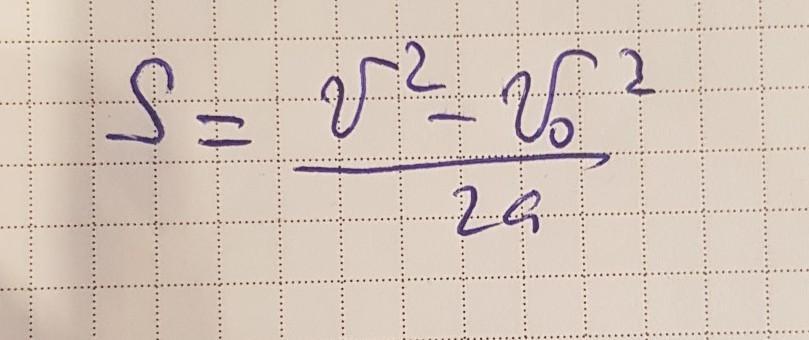 S = (v² - v₀²) / 2a